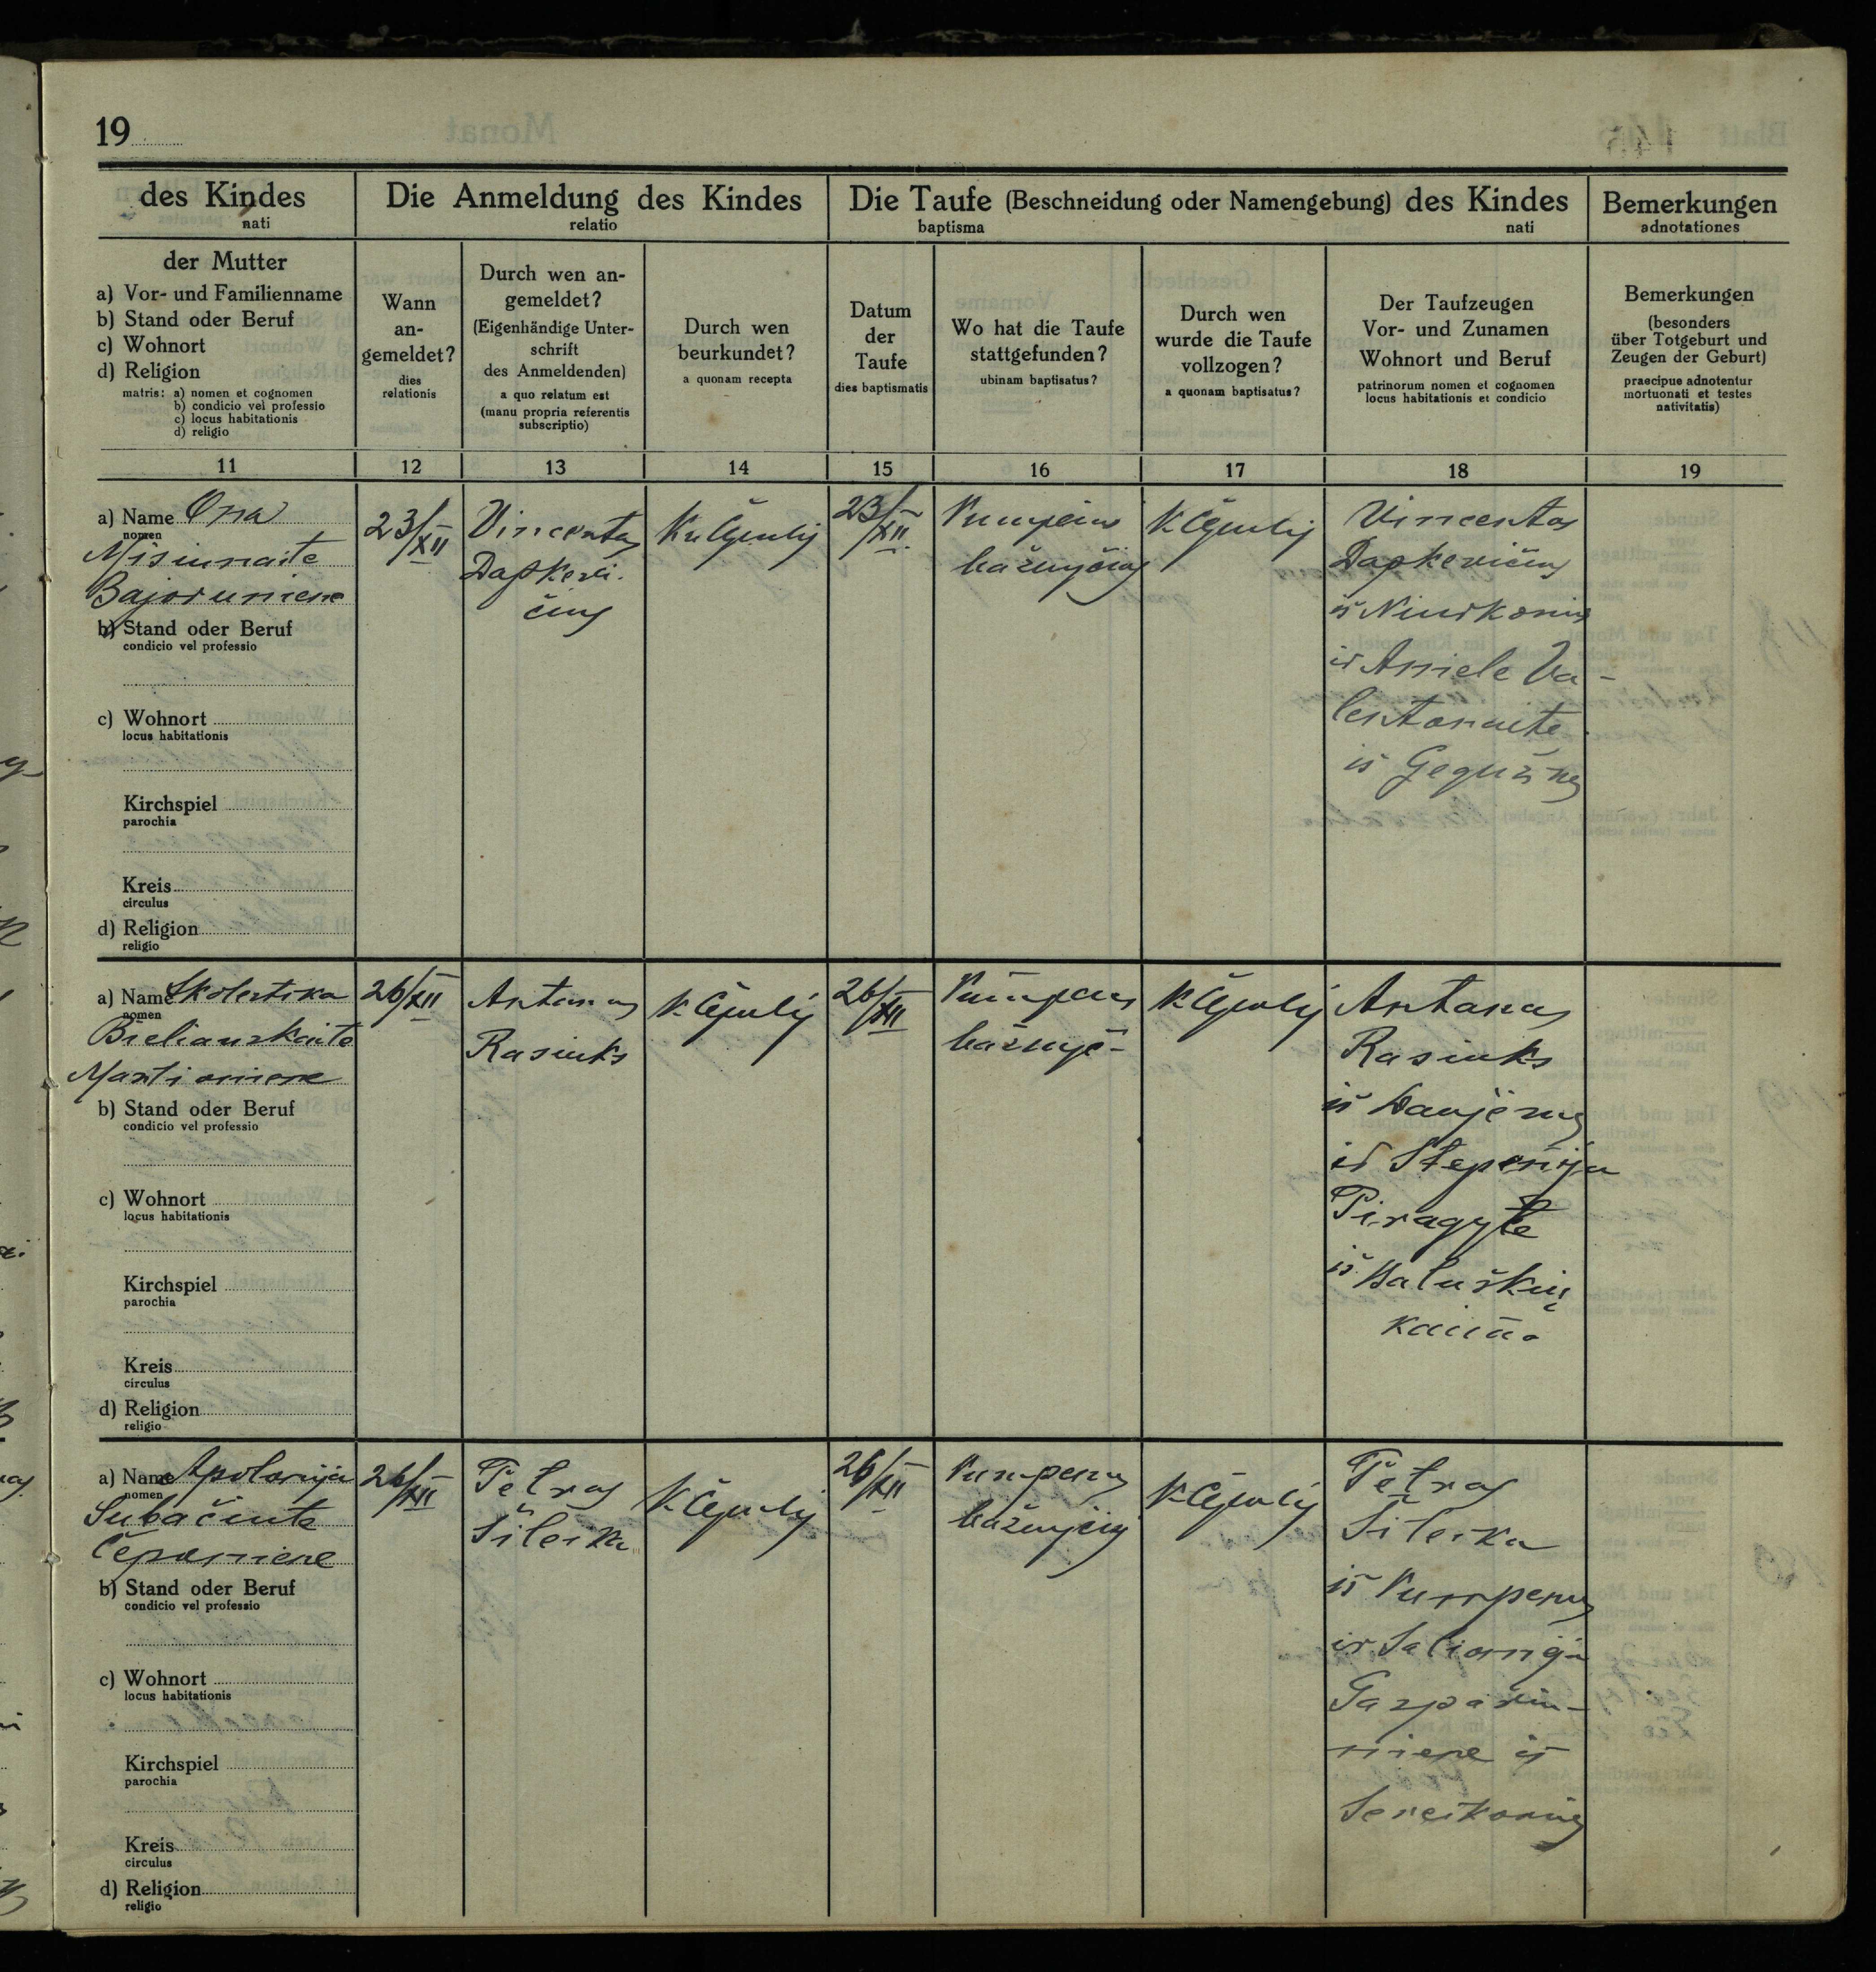 19
des Kindes
nati
Die Anmeldung des Kindes
relatio
Die Taufe (Beschneidung oder Namengebung) des Kindes
baptisma nati
Bemerkungen
adnotationes
der Mutter
a) Vor- und Familienname
b) Stand oder Beruf
c) Wohnort
d) Religion
matris: a) nomen et cognomen
b) condicio vel professio
c) locus habitationis
d) religio
Wann
an-
gemeldet?
dies
relationis
Durch wen an-
gemeldet?
(Eigenhändige Unter-
schrift
des Anmeldenden)
a quo relatum est
(manu propria referentis
subscriptio)
Durch wen
beurkundet?
a quonam recepta
Datum
der
Taufe
dies baptismatis
Wo hat die Taufe
stattgefunden?
ubinam baptisatus?
Durch wen
wurde die Taufe
vollzogen?
a quonam baptisatus?
Der Taufzeugen
Vor- und Zunamen
Wohnort und Beruf
patrinorum nomen et cognomen
locus habitationis et condicio
Bemerkungen
(besonders
über Totgeburt und
Zeugen der Geburt)
praecipue adnotentur
mortuonati et testes
nativitatis)
11 12 13 14 15 16 17 18 19
a) Name Ona
nomen
Misiunaite
Bajoruniene
b) Stand oder Beruf
condicio vel professio
c) Wohnort
locus habitationis
Kirchspiel
parochia
Kreis
circulus
d) Religion
religio
23/XII
Vincentas
Dapkevi-
čius
23/XII
Vincentas
Dapkevičius
iš Niurkonių
ir Aniele Va-
lentonaite
iš Gegužinės
a) Name Skolestika
nomen
Bieliauskaite
Martioniene
b) Stand oder Beruf
condicio vel professio
c) Wohnort
locus habitationis
Kirchspiel
parochia
Kreis
circulus
d) Religion
religio
26/XII
Antanas
Rasiuks
26/XII
Antanas
Rasiuks
iš
ir Steponija
Piragyte
iš
kaimo
a) Name Apolonija
nomen
Subačiute
Čeponiene
b) Stand oder Beruf
condicio vel professio
c) Wohnort
locus habitationis
Kirchspiel
parochia
Kreis
circulus
d) Religion
religio
26/XII
Petras
Šileika
26/XII
Petras
Šileika
iš Pumpenų
ir
Gaspariu-
niene iš
Sereikonių